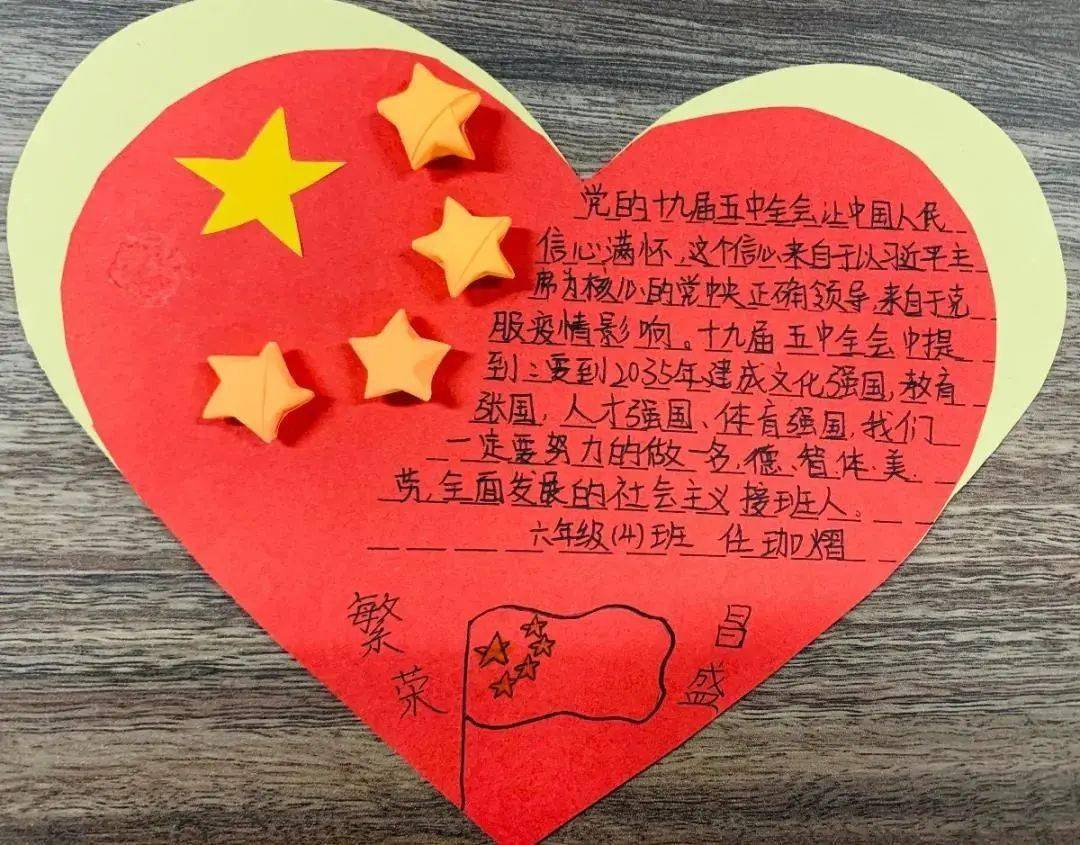 党的十九届五中全会让中国人民
信心满怀,这个信心来自于以习近平主
席为核心的党中央正确领导,来自于克
服疫情影响。十九届五中全会中提
到:要到2035年建成文化强国,教育
强国,人才强国、体育强国,我们
一定要努力的做一名,德、智、体、美、
劳,全面发展的社会主义接班人。
六年级(4)班 任珈熠
繁荣
昌盛